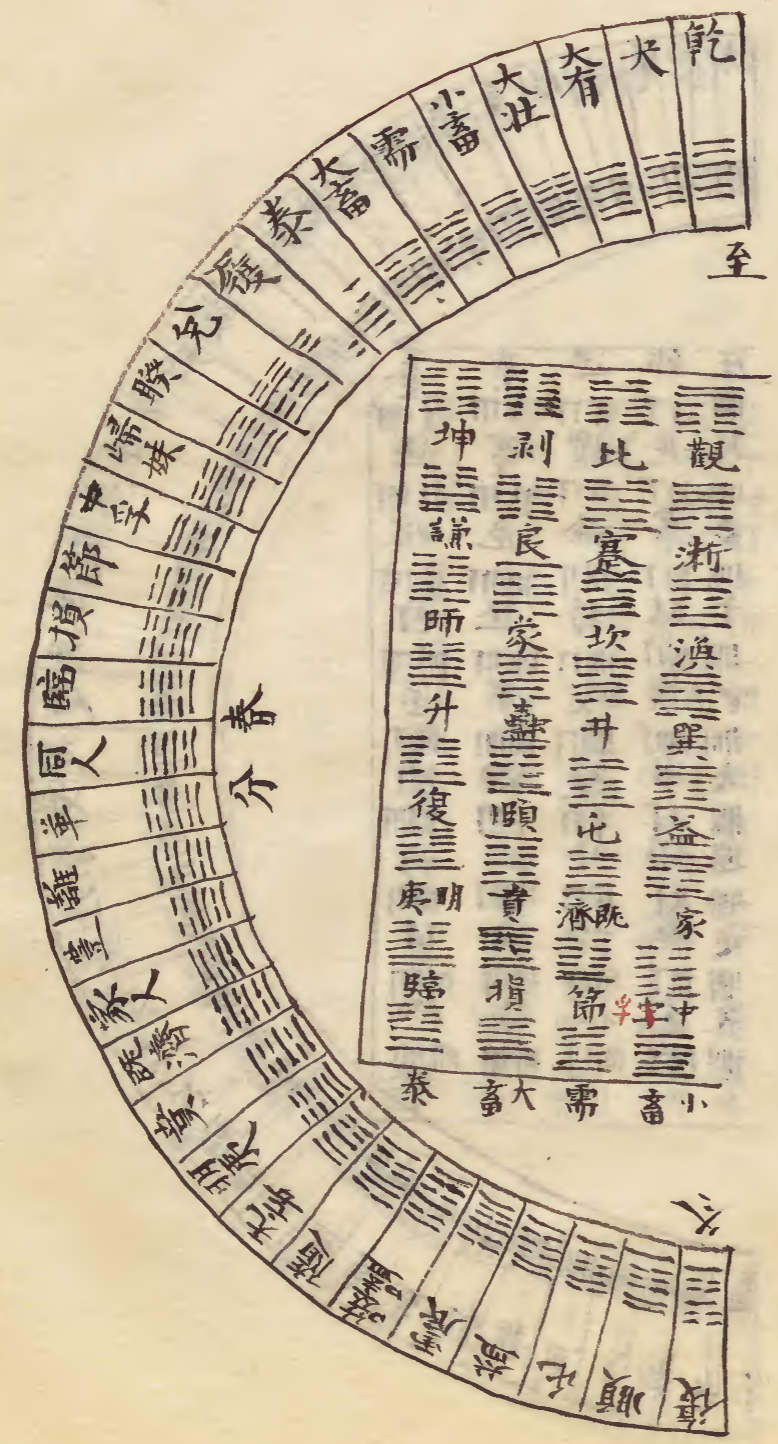 乾
夬
大有
大壯
小畜
需
大畜
泰
履
兌
睽
歸妹
中孚
節
損
臨
同人
革
離
豐
家人
既濟
賁
明夷
无妄
隨
噬嗑
震
益
屯
頤
復
至
春分
冬
觀
漸
渙
巽
益
家
中孚
小畜
比
蹇
坎
井
屯
既濟
節
需
剥
艮
蒙
蠱
頤
賁
損
大畜
坤
謙
師
升
復
明夷
臨
泰